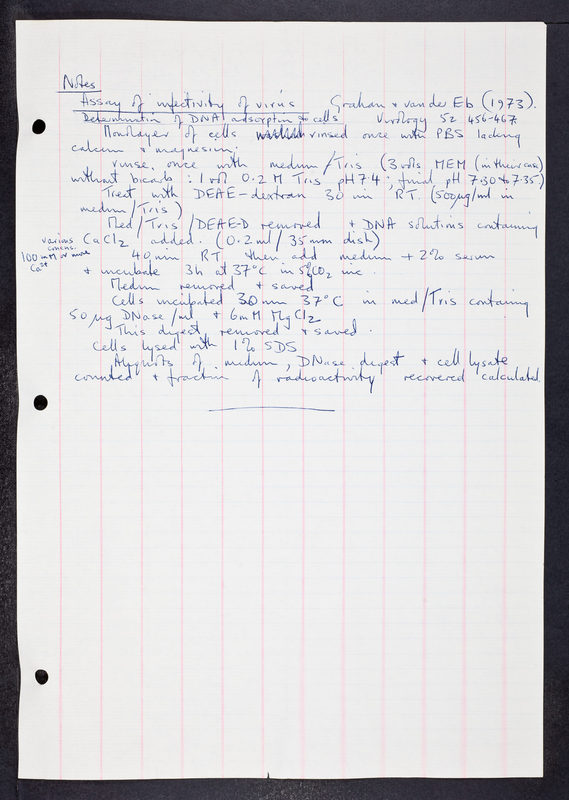 Notes
Assay of infectivity of virus Graham + van der Eb (1973).
Determination of DNA adsorption to cells Virology 52 456-467.
Monolayer of cells rinsed once with PBS lacking
calcium + magnesium.
rinse once with medium/Tris (3 vols MEM (in their case)
without bicarb : 1 vol 0.2 M Tris pH 7.4 ; final pH 7.30 to 7.35)
Treat with DEAE-dextran 30 min RT. (500 µg/ml in
medium/Tris)
Med/Tris/DEAE-D removed + DNA solutions containing
various CaCl2 added. (0.2 ml/35 mm dish)
concns.
100 mM or more
Ca2+
40 min RT then add medium + 2% serum
+ incubate 3h at 37°C in 5% CO2 inc.
Medium removed + saved
Cells incubated 30 min 37°C in med/Tris containing
50 µg DNase/ml + 6mM MgCl2
This digest removed + saved.
Cells lysed with 1% SDS
Aliquots of medium, DNase digest + cell lysate
counted + fraction of radioactivity recovered calculated.